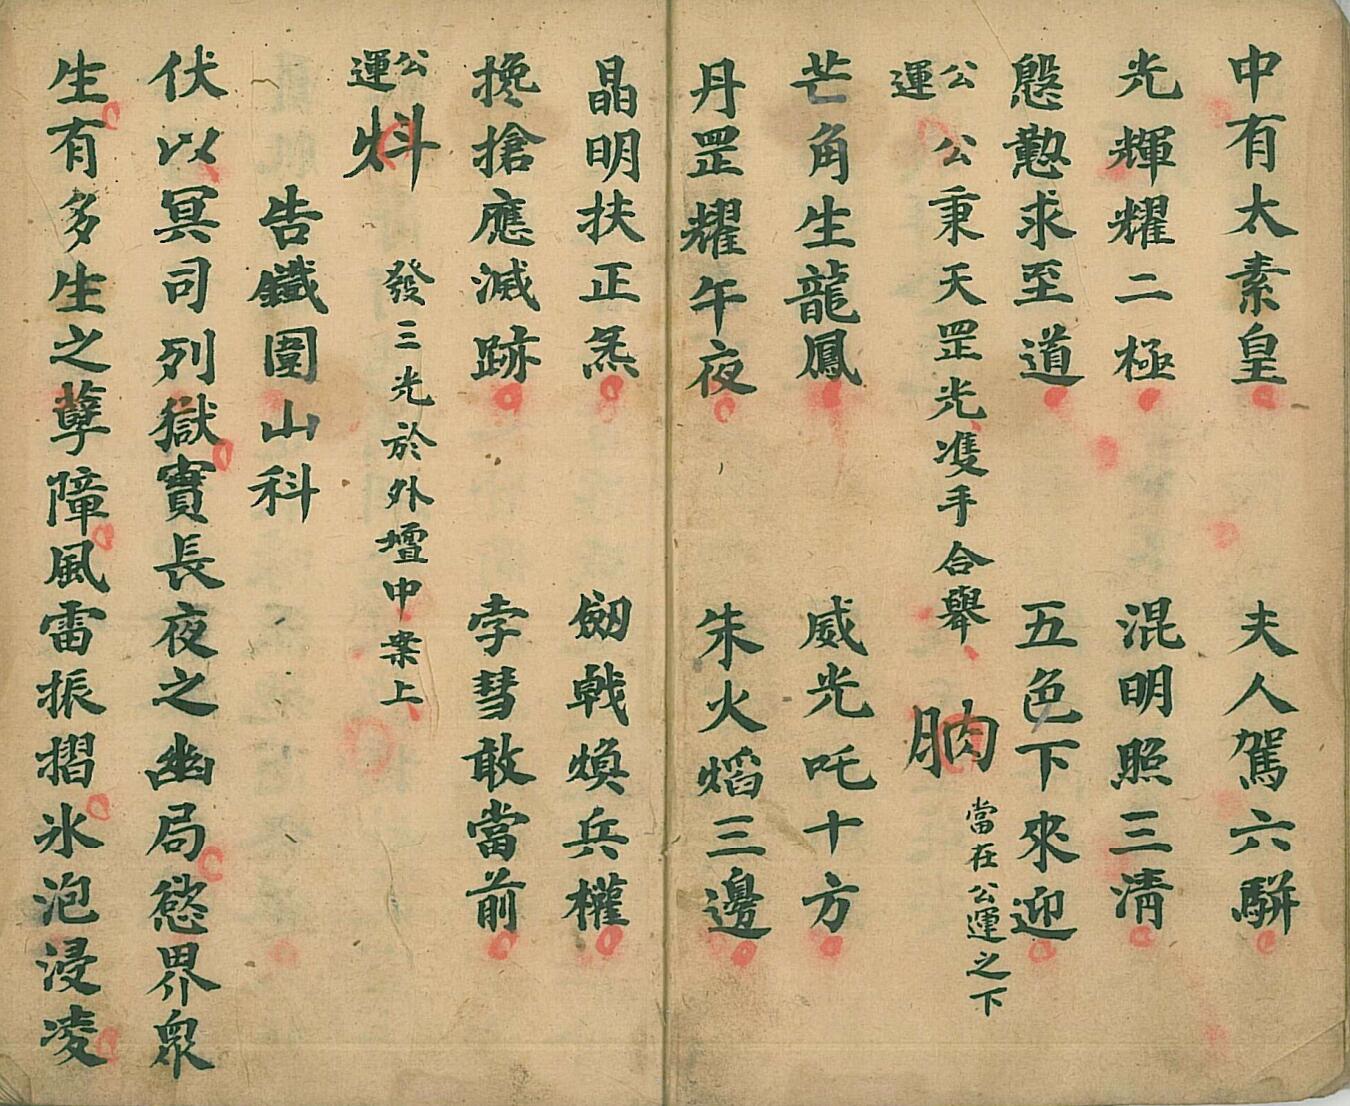 中有太素皇 夫人駕六駢
光輝耀二極 混明照三清
慇懃求至道 五色下來迎
公運 公秉天罡光隻手合舉 肭 當在公運之下
芒角生龍鳳 威光吒十方
丹罡耀午夜 朱火熖三邊
晶明扶正炁 劒戟煥兵權
攙搶應滅跡 孛彗敢當前
公運 炓 發三光於外壇中案上
告鐵圍山科
伏以冥司列獄實長夜之幽局慾界衆
生有多生之孽障風雷振摺氷泡浸凌